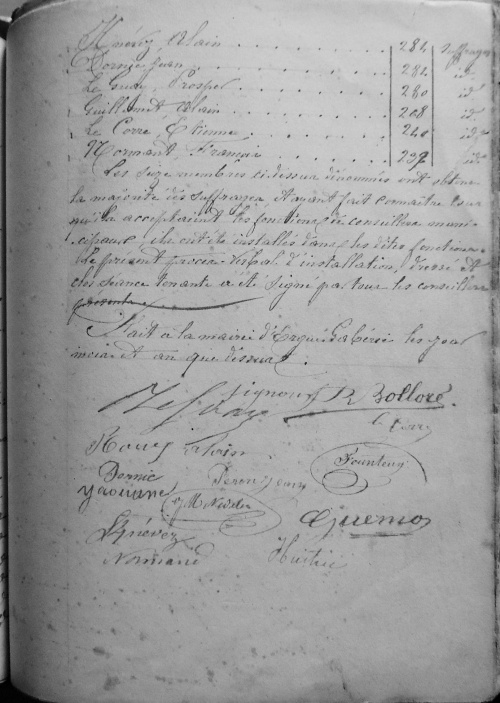 Knévez, Alain . . . . . . . 284 suffrages
Bernic Jean . . . . . . . 281 id.
Le Guay, Prosper . . . . . . . 280 id.
Guillamet, Alain . . . . . . . 208 id.
Le Corre, Etienne . . . . . . . 240 id.
Normant, François . . . . . . . 237 id.
Les seize membres ci-dessus dénommés ont obtenu
la majorité des suffrages, et ayant fait connaître tous
qu'ils acceptaient les fonctions de conseillers muni-
cipaux, ils ont été installés dans les dites fonctions.
Le présent procès-verbal d'installation, dressé et
clos séance tenante a été signé par tous les conseillers
présents
Fait à la mairie d'Ergué-Gabéric les jour
mois et an que dessus.
Signour R Bolloré.
Le Corre
Rouy Alain
Founteny
Bernic
Yaouanc
Jean
Guemo
Knévez
Normand
Huitric